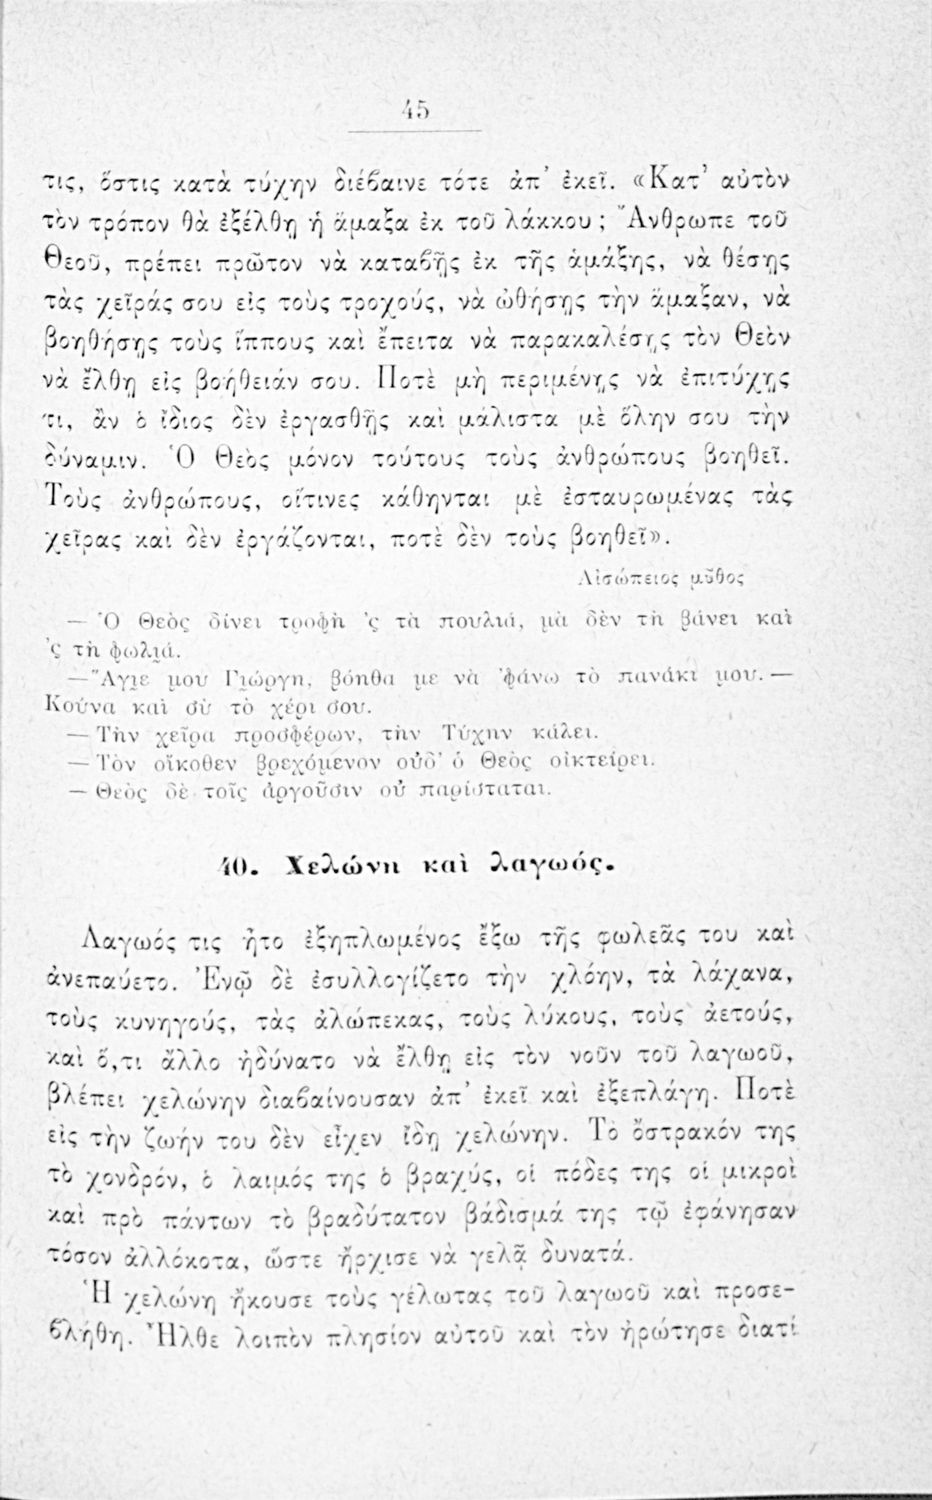 45
τις, ὅστις κατὰ τύχην διέβαινε τότε ἀπ’ ἐκεῖ. «Κατ’ αὐτὸν
τὸν τρόπον θὰ ἐξέλθῃ ἡ ἅμαξα ἐκ τοῦ λάκκου; Ἄνθρωπε τοῦ
Θεοῦ, πρέπει πρῶτον νὰ καταβῇς ἐκ τῆς ἁμάξης, νὰ θέσῃς
τὰς χεῖράς σου εἰς τοὺς τροχούς, νὰ ὠθήσῃς τὴν ἅμαξαν, νὰ
βοηθήσῃς τοὺς ἵππους καὶ ἔπειτα νὰ παρακαλέσῃς τὸν Θεὸν
νὰ ἔλθῃ εἰς βοήθειάν σου. Ποτὲ μὴ περιμένῃς νὰ ἐπιτύχῃς
τι, ἂν ὁ ἴδιος δὲν ἐργασθῇς καὶ μάλιστα μὲ ὅλην σου τὴν
δύναμιν. Ὁ Θεὸς μόνον τούτους τοὺς ἀνθρώπους βοηθεῖ.
Τοὺς ἀνθρώπους, οἵτινες κάθηνται μὲ ἐσταυρωμένας τὰς
χεῖρας καὶ δὲν ἐργάζονται, ποτὲ δὲν τοὺς βοηθεῖ».
Αἰσώπειος μῦθος
— Ὁ Θεὸς δίνει τροφὴ ’ς τὰ πουλιά, μὰ δὲν τὴ βάνει καὶ
’ς τὴ φωλιά.
— Ἅγιε μου Γιώργη, βόηθα με νὰ ’φάνω τὸ πανάκι μου. —
Κούνα καὶ σὺ τὸ χέρι σου.
— Τὴν χεῖρα προσφέρων, τὴν Τύχην κάλει.
— Τὸν οἴκοθεν βρεχόμενον οὐδ’ ὁ Θεὸς οἰκτείρει.
— Θεὸς δὲ τοῖς ἀργοῦσιν οὐ παρίσταται.
40. Χελώνη καὶ λαγωός.
Λαγωός τις ἦτο ἐξηπλωμένος ἔξω τῆς φωλεᾶς του καὶ
ἀνεπαύετο. Ἐνῷ δὲ ἐσυλλογίζετο τὴν χλόην, τὰ λάχανα,
τοὺς κυνηγούς, τὰς ἀλώπεκας, τοὺς λύκους, τοὺς ἀετούς,
καὶ ὅ,τι ἄλλο ἠδύνατο νὰ ἔλθῃ εἰς τὸν νοῦν τοῦ λαγωοῦ,
βλέπει χελώνην διαβαίνουσαν ἀπ’ ἐκεῖ καὶ ἐξεπλάγη. Ποτὲ
εἰς τὴν ζωήν του δὲν εἶχεν ἴδῃ χελώνην. Τὸ ὄστρακόν της
τὸ χονδρόν, ὁ λαιμός της ὁ βραχύς, οἱ πόδες της οἱ μικροὶ
καὶ πρὸ πάντων τὸ βραδύτατον βάδισμά της τῷ ἐφάνησαν
τόσον ἀλλόκοτα, ὥστε ἤρχισε νὰ γελᾷ δυνατά.
Ἡ χελώνη ἤκουσε τοὺς γέλωτας τοῦ λαγωοῦ καὶ προσε-
βλήθη. Ἦλθε λοιπὸν πλησίον αὐτοῦ καὶ τὸν ἠρώτησε διατί